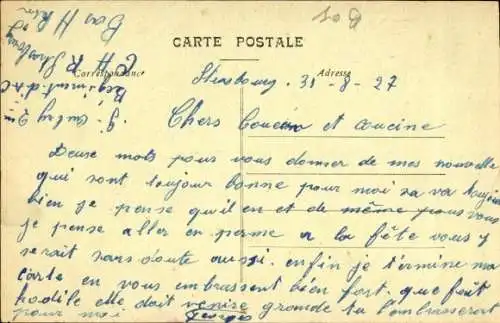 CARTE POSTALE
Correspondance
Adresse
Strasbourg. 31-8-27
Chers Cousin et cousine
Deuse mots pour vous donner de mes nouvelle
qui sont toujour bonne pour moi sa va toujour
bien je pense qu'il en et de même pour vous
je pense aller en perme a la fête vous y
serait sans doute aussi. enfin je termine ma
carte en vous embrassent bien fort. que fait
hodile elle doit venire grande tu l'embrasserat
pour moi Georges